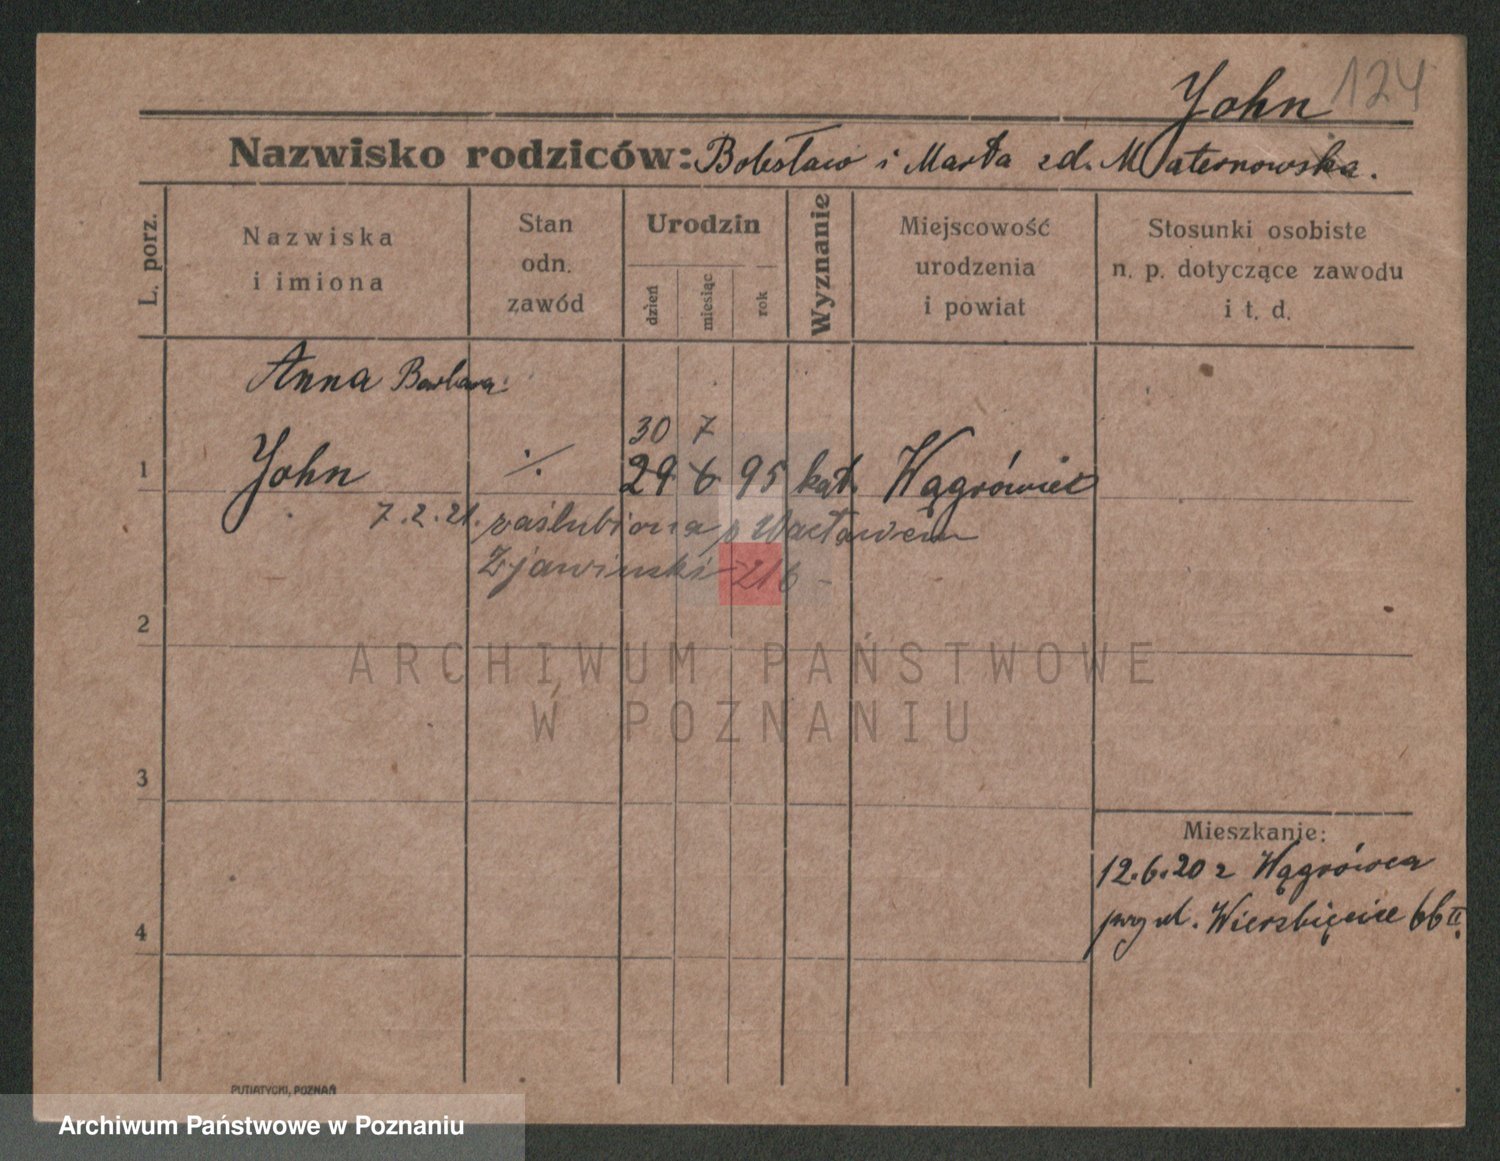 John 124
Nazwisko rodziców: Bolesław i Marta zd. Maternowska.
L. porz.
Nazwiska
i imiona
Stan
odn.
zawód
Urodzin
dzień
miesiąc
rok
Wyznanie
Miejscowość
urodzenia
i powiat
Stosunki osobiste
n. p. dotyczące zawodu
i t. d.
Anna Barbara
30 7
1 John ./. 29 6 95 kat. Wągrówiec
7.2.21. zaślubiona z Wacławem
Zjawiński 216 -
2
ARCHIWUM PAŃSTWOWE
W POZNANIU
3
Mieszkanie:
12.6.20 z Wągrówca
przy ul. Wierzbięcice 66 II.
4
PUTIATYCKI, POZNAŃ
Archiwum Państwowe w Poznaniu